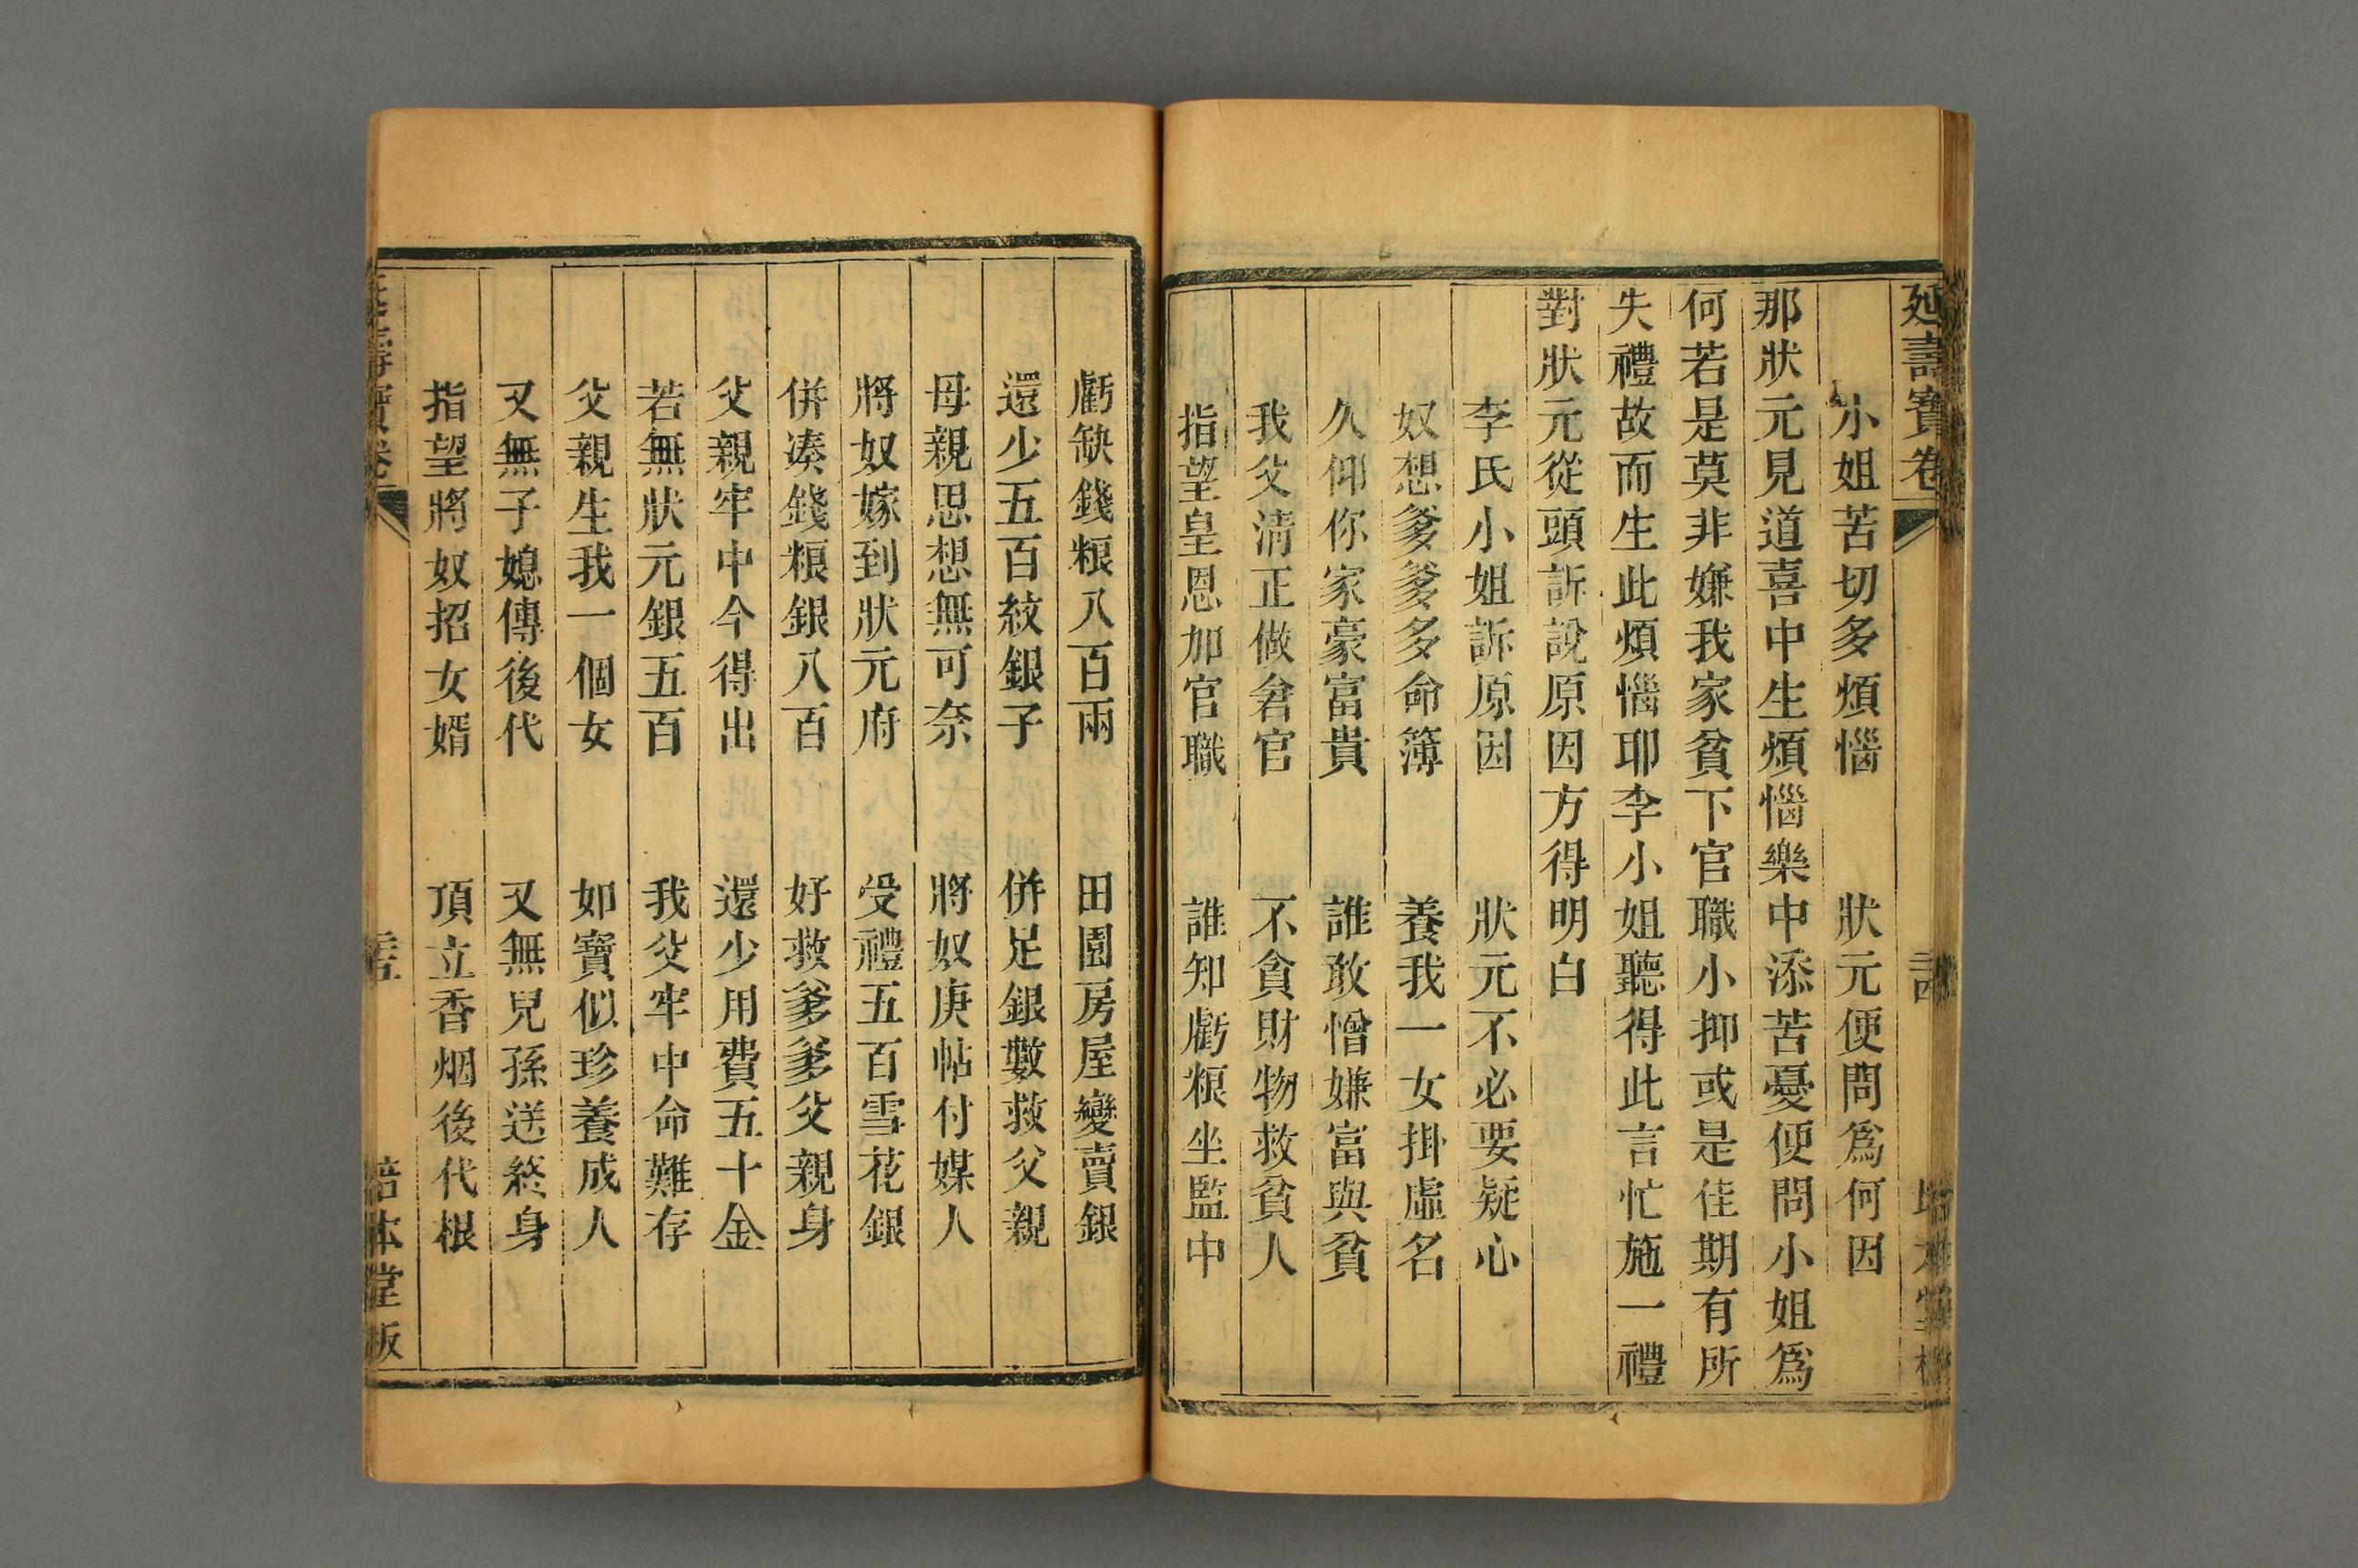 延壽寶卷
小姐苦切多煩惱　狀元便問爲何因
那狀元見道喜中生煩惱樂中添苦憂便問小姐爲
何若是莫非嫌我家貧下官職小抑或是佳期有所
失禮故而生此煩惱耶李小姐聽得此言忙施一禮
對狀元從頭訴說原因方得明白
李氏小姐訴原因　狀元不必要疑心
奴想爹爹多命簿　養我一女掛虛名
久仰你家豪富貴　誰敢憎嫌富與貧
我父淸正做倉官　不貪財物救貧人
指望皇恩加官職　誰知虧粮坐監中
虧缺錢粮八百兩　田園房屋變賣銀
還少五百紋銀子　併足銀數救父親
母親思想無可奈　將奴庚帖付媒人
將奴嫁到狀元府　受禮五百雪花銀
併凑錢粮銀八百　好救爹爹父親身
父親牢中今得出　還少用費五十金
若無狀元銀五百　我父牢中命難存
父親生我一個女　如寶似珍養成人
又無子媳傳後代　又無兒孫送終身
指望將奴招女婿　頂立香烟後代根
壽寶卷　培本堂板